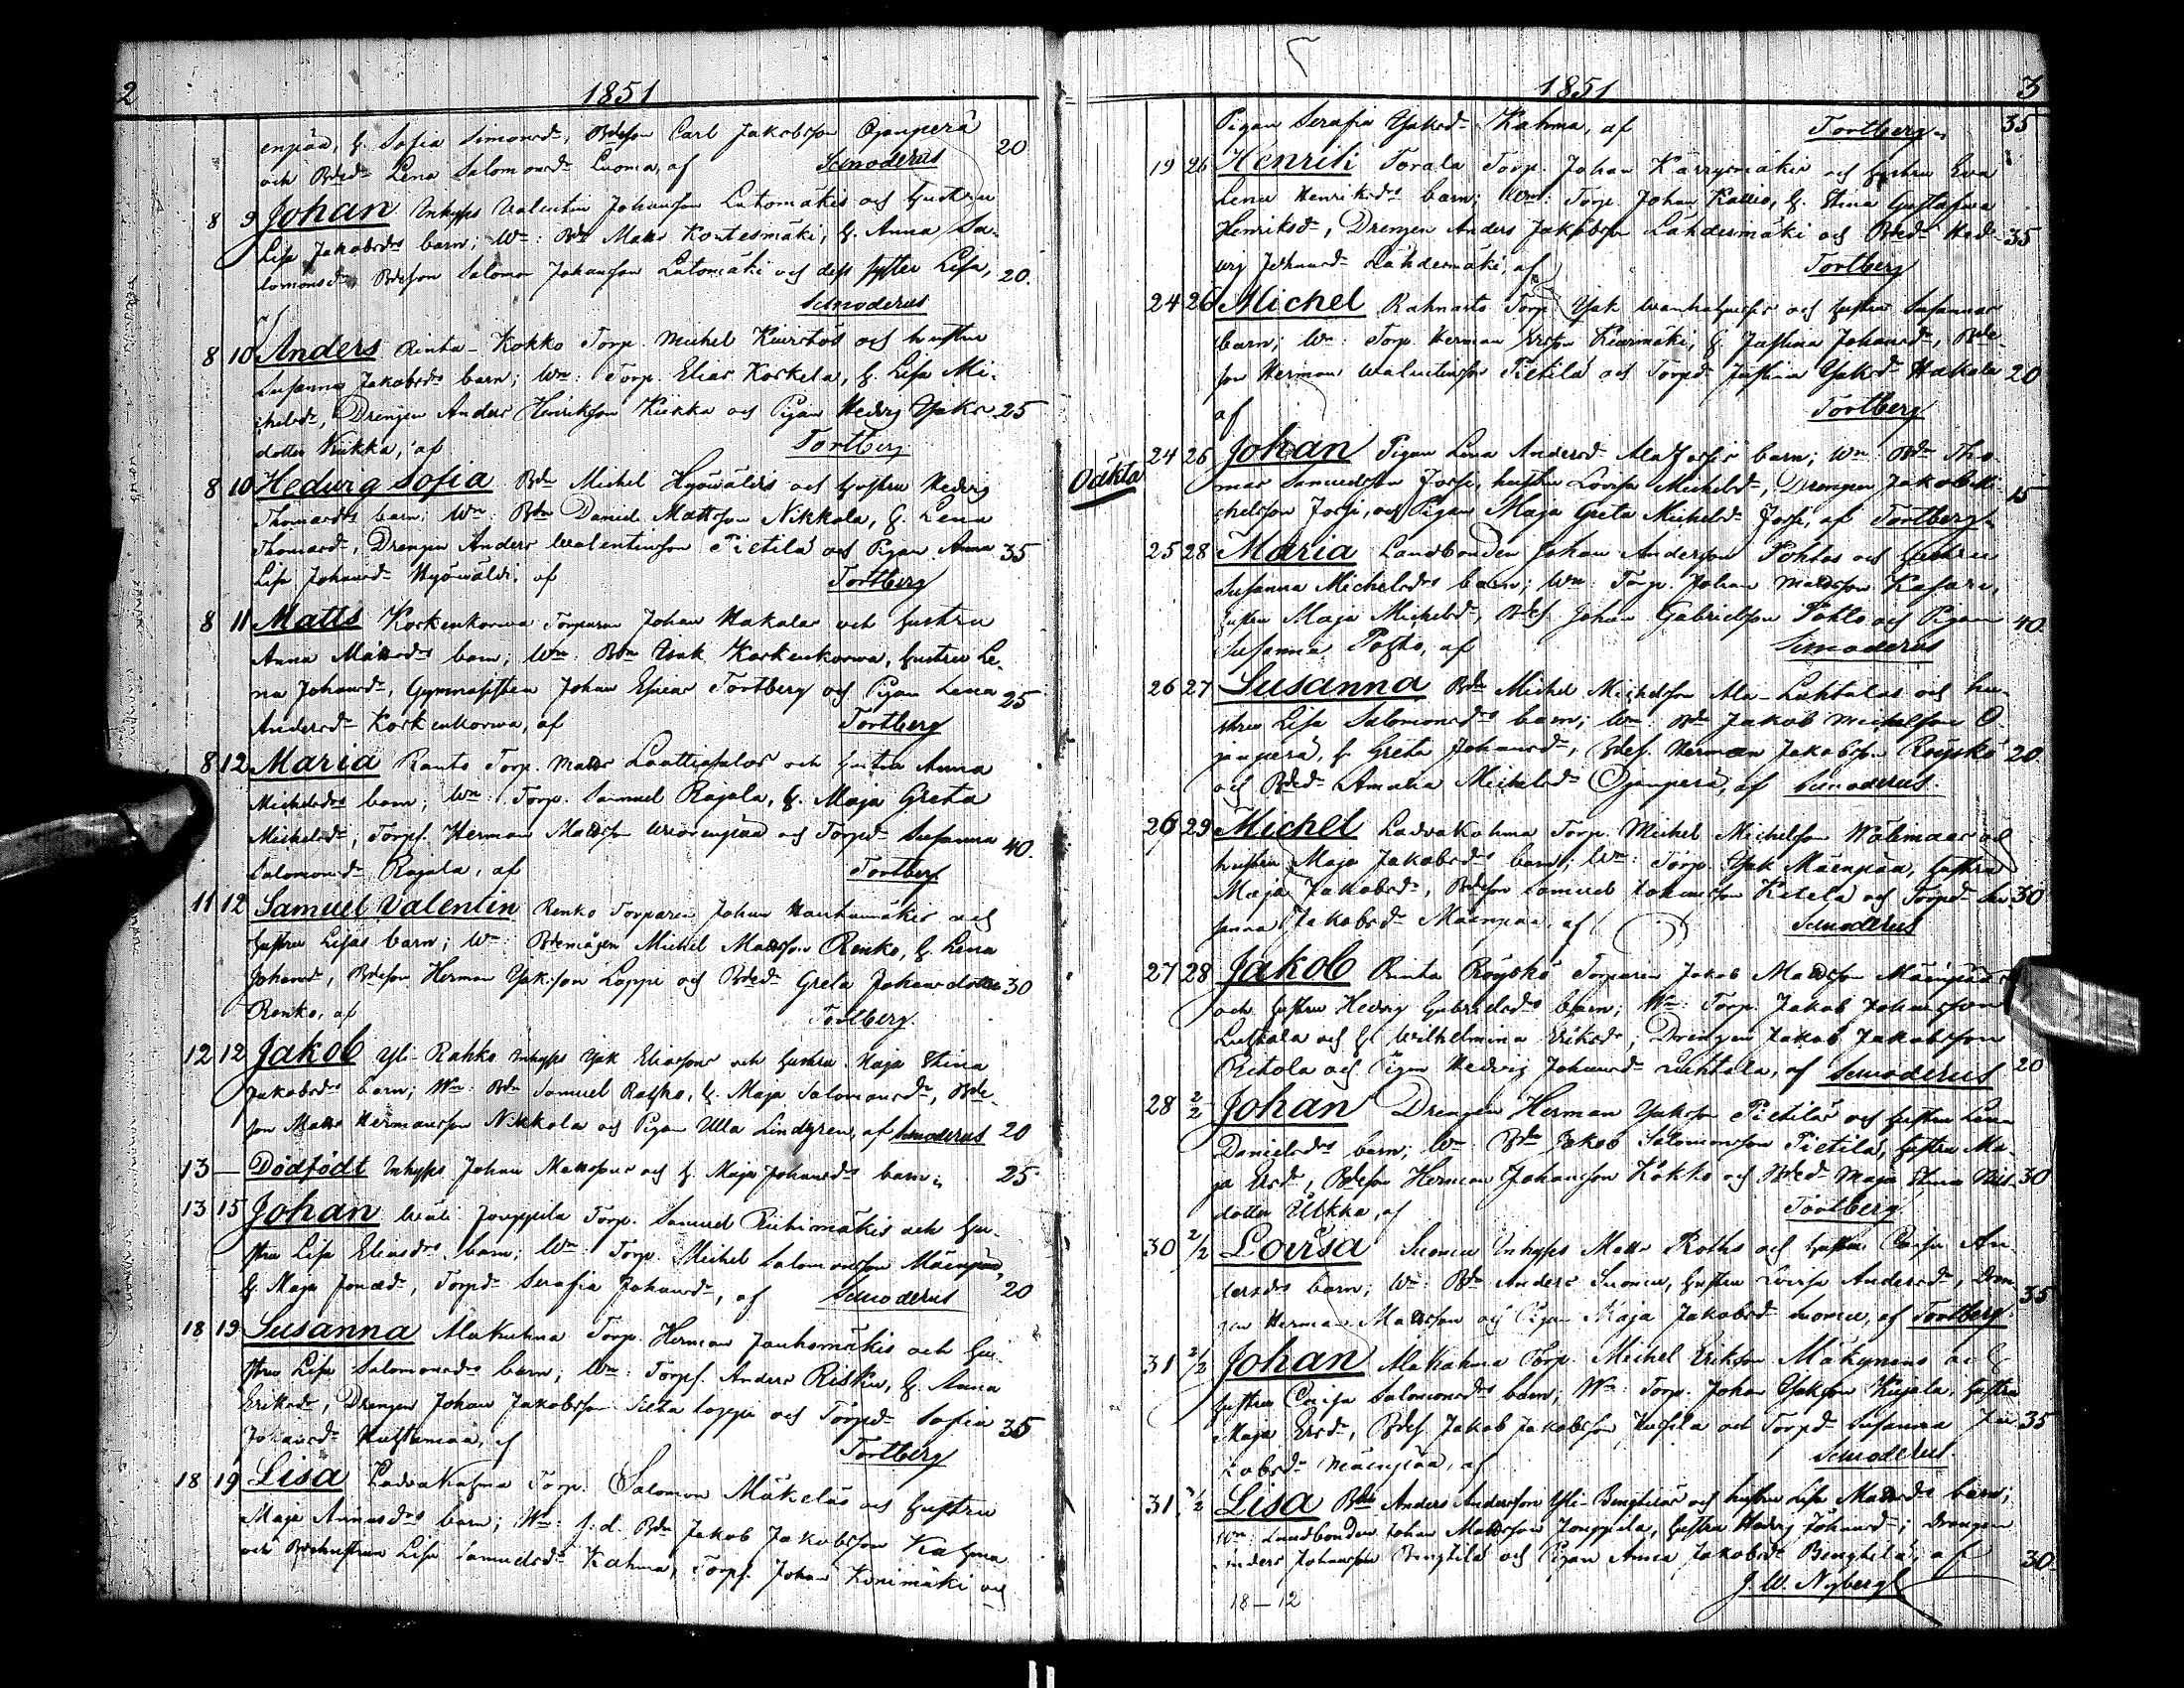 2
1851
enpää, h. Sofia Simonsdr, Bdeson Carl Jakobsson Ojanperä 20
och Bdedr Lena Salomonsdr Luoma, af Schroderus
8 9 Johan Inhyses Valentin Johansson Latomäkis och hustru
Lisa Jakobsdrs barn; Wn: Bdn Matts Kontesmäki, h. Anna Sa-
lomonsdr, Bdeson Salomon Johansson Latomäki och dess syster Lisa, 20.
af Schroderus
8 10 Anders Rinta-Kokko Torp. Michel Kiurstös och hustru
Susanna Jakobsdrs barn; Wn: Torp. Elias Korkela, h. Lisa Mi-
chelsdr, Drengen Anders Henriksson Kiikka och Pigan Hedvig Isaks- 25
dotter Kiikka, af Tortberg
8 10 Hedvig Sofia Bdn Michel Hyöwältis och hustru Hedvig
Thomasdrs barn; Wn: Bdn Daniel Mattsson Nikkola, h. Lena
Thomasdr, Drengen Anders Walentinsson Pietilä och Pigan Anna 35
Lisa Johansdr Hyöwälti, af Tortberg
8 11 Matts Korkenkorwa Torparen Johan Hakalas och hustru
Anna Mattsdrs barn; Wn: Bdn Isak Korkenkorwa, hustru Le-
na Johansdr, Gymnasisten Johan Esaias Tortberg och Pigan Lena 25
Andersdr Korkenkorwa, af Tortberg
8 12 Maria Ranto Torp. Matts Laattialas och hustru Anna
Michelsdrs barn; Wn: Torp. Samuel Rajala, h. Maja Greta
Michelsdr, Torps. Herman Mattsson Wuorenpää och Torpdr Susanna 40.
Salomonsdr Rajala, af Tortberg
11 12 Samuel Valentin Renko Torparen Johan Hauhamäkis och
hustru Lisas barn; Wn: Bdemågen Michel Mattsson Renko, h. Lena
Johansdr, Bdeson Herman Isaksson Loppi och Bdedr Greta Johansdotter 30
Renko, af Tortberg.
12 12 Jakob Yli-Rahko Inhyses Isak Eliassons och hustru Maja Stina
Jakobsdrs barn; Wn: Bdn Samuel Rahko, h. Maja Salomonsdr, Bde-
son Matts Hermansson Nikkola och Pigan Ulla Lindgren, af Schroderus 20
13 — Dödfödt Inhyses Johan Mattssons och h. Maja Johansdrs barn; 25
13 15 Johan Wäli Jouppila Torp. Samuel Riihimäkis och hu-
stru Lisa Eliasdrs barn; Wn: Torp. Michel Salomonsson Mäenpää,
h. Maja Jonædr, Torpdr Serafia Johansdr, af Schroderus 20
18 19 Susanna Alakuhna Torp. Herman Jouhomäkis och hu-
stru Lisa Salomonsdrs barn; Wn: Torps. Anders Risku, h. Anna
Eriksdr, Drengen Johan Jakobsson Silta loppi och Torpdr Sofia 35
Johansdr Huhtamaa, af Tortberg
18 19 Lisa Ladvakahma Torp. Salomon Mäkeläs och hustru
Maja Annasdrs barn; Wn: f.d. Bdn Jakob Jakobsson Kahma
och Bdehustrun Lisa Samuelsdr Kahma, Torps. Johan Konimäki och
1851
3
Pigan Serafia Isaksdr Kahma, af Tortberg. 35
19 26 Henrik Torala Torp. Johan Karrysmäkis och hustru Eva
Lena Henriksdrs barn; Wn: Torp. Johan Kallio, h. Stina Gustafva
Henriksdr, Drengen Anders Jakobsson Lähdesmäki och Bdedr Hed- 35
vig Johansdr Lähdesmäki, af Tortberg
24 26 Michel Rahnasto Torp. Isak Wanhatuvas och hustru Susannas
barn; Wn: Torp. Herman Ersson Kiwimäki, h. Justina Johansdr, Bde-
son Herman Walentinsson Pietilä och Torpdr Justina Isaksdr Hakala 20
af Tortberg
Oäkta
24 26 Johan Pigan Lena Andersdr Ala Jossis barn; Wn: Bdn Tho-
mas Samuelsson Jossi, hustru Lovisa Michelsdr, Drengen Jakob Mi- 15
chelsson Jossi, och Pigan Maja Greta Michelsdr Jossi, af Tortberg.
25 28 Maria Landbonden Johan Andersson Pohtos och hustru
Susanna Michelsdrs barn; Wn: Torp. Johan Mattsson Kasari,
hustru Maja Michelsdr, Bdes. Johan Gabrielsson Pohto och Pigan 40
Susanna Pohto, af Schroderus
26 27 Susanna Bdn Michel Michelsson Ala-Luhtalas och hu-
stru Lisa Salomonsdrs barn; Wn: Bdn Jakob Michelsson O-
janperä, h. Greta Johansdr, Bdes. Herman Jakobsson Röyskö 20
och Bdedr Amalia Michelsdr Ojanperä, af Schroderus.
26 29 Michel Ladvakahma Torp. Michel Michelsson Wälimaas och
hustru Maja Jakobsdrs barn; Wn: Torp. Isak Mäenpää, hustru
Maja Jakobsdr, Bdeson Samuel Johansson Ketola och Torpdr Su- 30
sanna Jakobsdr Mäenpää, af Schroderus
27 28 Jakob Rinta Röyskö Torparen Jakob Mattsson Mäenpääs
och hustru Hedvig Gabrielsdrs barn; Wn: Torp. Jakob Johansson
Luhtala och h. Wilhelmina Eriksdr, Drengen Jakob Jakobsson
Ritola och Pigan Hedvig Johansdr Luhtala, af Schroderus 20
28 2/2 Johan Drengen Herman Isaksson Pietiläs och hustru Lena
Danielsdrs barn; Wn: Bdn Jakob Salomonsson Pietilä, hustru Ma-
ja Ersdr, Bdeson Herman Johansson Kokko och Bdedr Maja Stina Nils- 30
dotter Ulkka, af Tortberg.
30 2/2 Lovisa Suomu Inhyses Matts Roths och hustru Caisa An-
dersdrs barn; Wn: Bdn Anders Suomu, hustru Lovisa Andersdr, Dren- 35
gen Herman Mattsson och Pigan Maja Jakobsdr Suomu, af Tortberg.
31 2/2 Johan Alakahma Torp. Michel Eriksson Mäkynens och
hustru Caisa Salomonsdrs barn; Wn: Torp. Johan Isaksson Kujala, hustru
Maja Ersdr, Bdes. Jakob Jakobsson Kuhila och Torpdr Susanna Ja- 35
kobsdr Mäenpää, af Schroderus.
31. 2/2 Lisa Bdn Anders Andersson Yli-Benghiläs och hustru Lisa Mattsdrs barn;
Wn: Landbonden Johan Mattsson Jouppila, hustru Hedvig Johansdr; Drengen
Anders Johansson Benghilä och Pigan Anna Jakobsdr Benghilä, af 30.
J. W. Nyberg
18—12